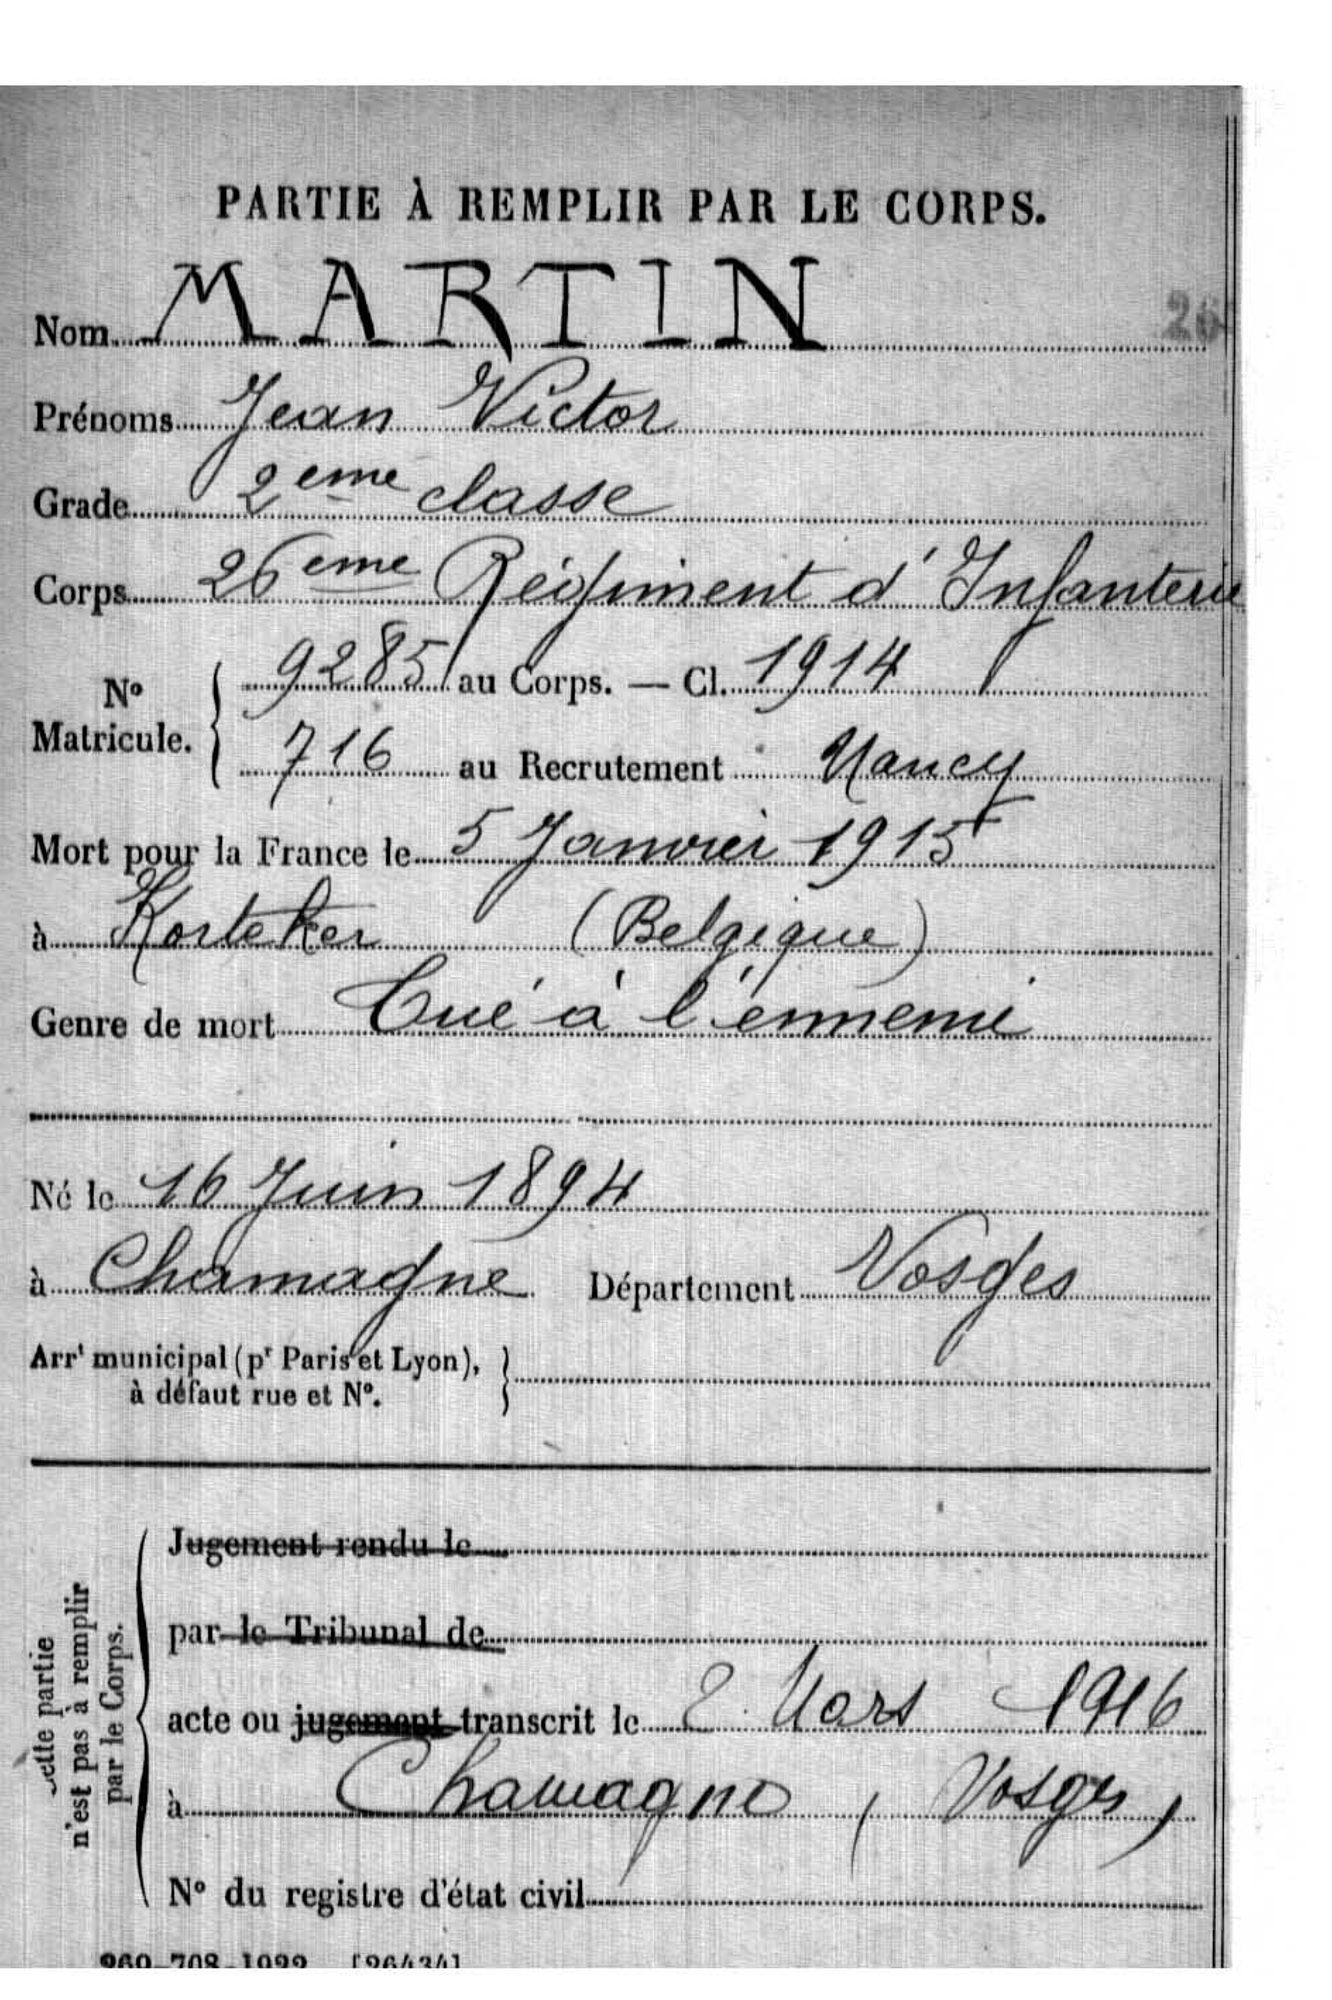 PARTIE À REMPLIR PAR LE CORPS.
Nom MARTIN
26
Prénoms Jean Victor
Grade 2eme classe
Corps 26eme Régiment d'Infanterie
N° Matricule. { 9285 au Corps. — Cl. 1914
716 au Recrutement Nancy
Mort pour la France le 5 Janvier 1915
à Korteker (Belgique)
Genre de mort Tué à l'ennemi
Né le 16 Juin 1894
à Chamagne Département Vosges
Arrt municipal (pr Paris et Lyon),
à défaut rue et N°.
cette partie
n'est pas à remplir
par le Corps.
Jugement rendu le
par le Tribunal de
acte ou jugement transcrit le 2 Mars 1916
à Chamagne (Vosges)
N° du registre d'état civil
269-708-1922 [26434]